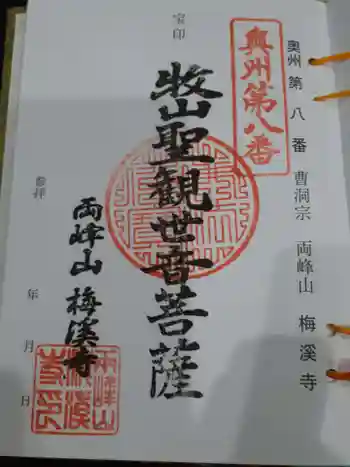 奥州第八番 曹洞宗 両峰山 梅溪寺
奥州第八番
宝印
牧山聖観世音菩薩
両峰山 梅溪寺
参拝
年 月 日
両峰山梅溪寺印